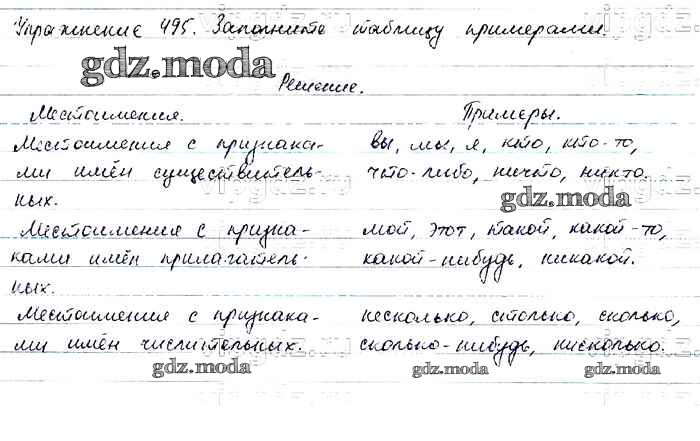 Упражнение 495. Заполните таблицу примерами.
gdz.moda
Решение.
Местоимения. Примеры.
Местоимения с признака- вы, мы, я, кто, кто-то,
ми имён существитель- что-либо, ничто, никто.
ных. gdz.moda
Местоимения с призна- мой, этот, такой, какой-то,
ками имён прилагатель- какой-нибудь, никакой.
ных.
Местоимения с признака- несколько, столько, сколько,
ми имён числительных. сколько-нибудь, нисколько.
gdz.moda gdz.moda gdz.moda